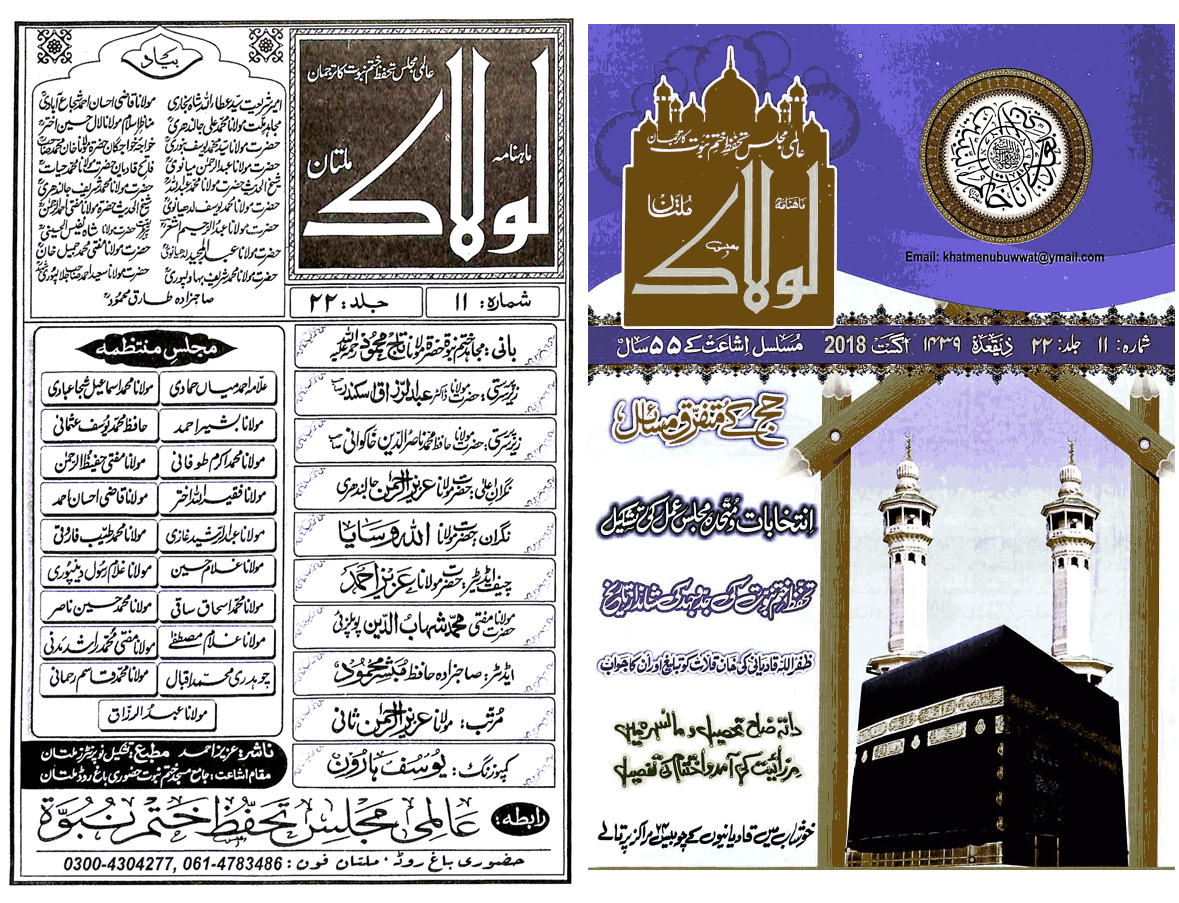 عالمی مجلس تحفظ ختم نبوت کا ترجمان
ماہنامہ
لولاک
ملتان
Email: khatmenubuwwat@ymail.com
شمارہ: ۱۱ جلد: ۲۲ ذیقعدہ ۱۴۳۹ اگست 2018 مسلسل اشاعت کے ۵۵ سال
حج کے متفرق مسائل
انتخابات و متحدہ مجلس عمل کی تشکیل
تحفظ ختم نبوت کی جدوجہد کی شاندار تاریخ
ظفر اللہ قادیانی کی خان قلات کو تبلیغ اور ان کا جواب
داتہ ضلع تحصیل و مانسہرہ میں
مرزائیت کی آمد و اختتام کی تفصیل
خوشاب میں قادیانیوں کے چوبیس مراکز پر تالے
بیاد
امیر شریعت سید عطاء اللہ شاہ بخاریؒ
مولانا قاضی احسان احمد شجاع آبادیؒ
مجاہد ملت مولانا محمد علی جالندھریؒ
مناظر اسلام مولانا لال حسین اخترؒ
حضرت مولانا سید محمد یوسف بنوریؒ
خواجہ خواجگان حضرت مولانا خان محمد صاحبؒ
حضرت مولانا عبدالرحمن میانویؒ
فاتح قادیان حضرت مولانا محمد حیاتؒ
شیخ الحدیث حضرت مولانا محمد عبداللہؒ
حضرت مولانا محمد شریف جالندھریؒ
حضرت مولانا محمد یوسف لدھیانویؒ
شیخ الحدیث حضرت مولانا مفتی احمد الرحمنؒ
حضرت مولانا عبدالرحیم اشعرؒ
حضرت مولانا شاہ نفیس الحسینیؒ
حضرت مولانا عبدالمجید لدھیانویؒ
حضرت مولانا مفتی محمد جمیل خانؒ
حضرت مولانا محمد شریف بہاولپوریؒ
حضرت مولانا سعید احمد صاحب جلالپوریؒ
صاحبزادہ طارق محمودؒ
عالمی مجلس تحفظ ختم نبوت کا ترجمان
ماہنامہ
لولاک
ملتان
شمارہ: ۱۱ جلد: ۲۲
بانی: مجاہد ختم نبوۃ حضرۃ مولانا تاج محمود رحمۃ اللہ علیہ
زیرسرپرستی: حضرت مولانا ڈاکٹر عبدالرزاق اسکندر
زیرسرپرستی: حضرت مولانا حافظ محمد ناصر الدین خاکوانی
نگران اعلیٰ: حضرت مولانا عزیز الرحمن جالندھری
نگران: حضرت مولانا اللہ وسایا
چیف ایڈیٹر: حضرت مولانا عزیز احمد
حضرت مولانا مفتی محمد شہاب الدین پوپلزئی
ایڈیٹر: صاحبزادہ حافظ مبشر محمود
مرتب: مولانا عزیز الرحمن ثانی
کمپوزنگ: یوسف ہارون
مجلس منتظمہ
علامہ احمد میاں حمادی
مولانا محمد اسماعیل شجاعبادی
مولانا بشیر احمد
حافظ محمد یوسف عثمانی
مولانا محمد اکرم طوفانی
مولانا مفتی حفیظ الرحمٰن
مولانا فقیر اللہ اختر
مولانا قاضی احسان احمد
مولانا عبدالرشید غازی
مولانا محمد طیب فارقی
مولانا غلام حسین
مولانا غلام رسول دینپوری
مولانا محمد اسحاق ساقی
مولانا محمد حسین ناصر
مولانا غلام مصطفےٰ
مولانا مفتی محمد راشد مدنی
چوہدری محمد اقبال
مولانا محمد قاسم رحمانی
مولانا عبدالرزاق
ناشر: عزیز احمد مطبع: تشکیل نو پرنٹرز ملتان
مقام اشاعت: جامع مسجد ختم نبوت حضوری باغ روڈ ملتان
رابطہ: عالمی مجلس تحفظ ختم نبوۃ
حضوری باغ روڈ، ملتان فون: 061-4783486, 0300-4304277